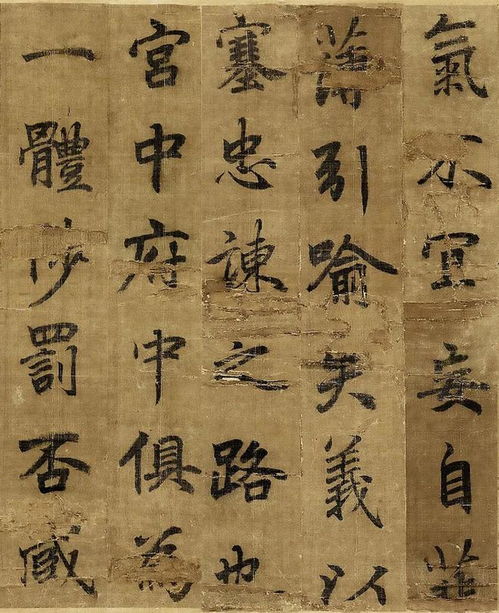 氣不宜妄自菲
薄引喻失義以
塞忠諫之路也
宮中府中俱為
一體陟罰否臧